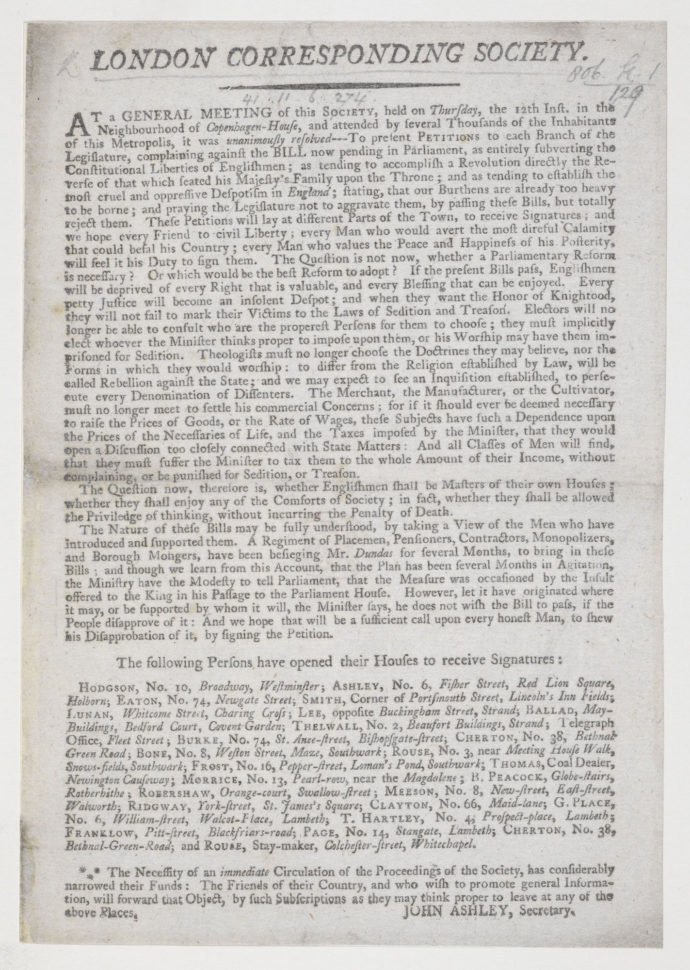 LONDON CORRESPONDING SOCIETY.
806. k. 1
129
41 11 6 274
AT a GENERAL MEETING of this SOCIETY, held on Thurſday, the 12th Inſt. in the
Neighbourhood of Copenhagen-Houſe, and attended by ſeveral Thouſands of the Inhabitants
of this Metropolis, it was unanimouſly reſolved---To preſent PETITIONS to each Branch of the
Legiſlature, complaining againſt the BILL now pending in Parliament, as entirely ſubverting the
Conſtitutional Liberties of Engliſhmen; as tending to accompliſh a Revolution directly the Re-
verſe of that which ſeated his Majeſty's Family upon the Throne; and as tending to eſtabliſh the
moſt cruel and oppreſſive Deſpotiſm in England; ſtating, that our Burthens are already too heavy
to be borne; and praying the Legiſlature not to aggravate them, by paſſing theſe Bills, but totally
reject them. Theſe Petitions will lay at different Parts of the Town, to receive Signatures; and
we hope every Friend to civil Liberty; every Man who would avert the moſt direful Calamity
that could befal his Country; every Man who values the Peace and Happineſs of his Poſterity,
will feel it his Duty to ſign them. The Queſtion is not now, whether a Parliamentary Reform
is neceſſary? Or which would be the beſt Reform to adopt? If the preſent Bills paſs, Engliſhmen
will be deprived of every Right that is valuable, and every Bleſſing that can be enjoyed. Every
petty Juſtice will become an inſolent Deſpot; and when they want the Honor of Knightood,
they will not fail to mark their Victims to the Laws of Sedition and Treaſon. Electors will no
longer be able to conſult who are the propereſt Perſons for them to chooſe; they muſt implicitly
elect whoever the Miniſter thinks proper to impoſe upon them, or his Worſhip may have them im-
priſoned for Sedition. Theologiſts muſt no longer chooſe the Doctrines they may believe, nor the
Forms in which they would worſhip: to differ from the Religion eſtabliſhed by Law, will be
called Rebellion againſt the State; and we may expect to ſee an Inquiſition eſtabliſhed, to perſe-
cute every Denomination of Diſſenters. The Merchant, the Manufacturer, or the Cultivator,
muſt no longer meet to ſettle his commercial Concerns; for if it ſhould ever be deemed neceſſary
to raiſe the Prices of Goods, or the Rate of Wages, theſe Subjects have ſuch a Dependence upon
the Prices of the Neceſſaries of Life, and the Taxes impoſed by the Miniſter, that they would
open a Diſcuſſion too cloſely connected with State Matters: And all Claſſes of Men will find,
that they muſt ſuffer the Miniſter to tax them to the whole Amount of their Income, without
complaining, or be puniſhed for Sedition, or Treaſon.
The Queſtion now, therefore is, whether Engliſhmen ſhall be Maſters of their own Houſes;
whether they ſhall enjoy any of the Comforts of Society; in fact, whether they ſhall be allowed
the Priviledge of thinking, without incurring the Penalty of Death.
The Nature of theſe Bills may be fully underſtood, by taking a View of the Men who have
introduced and ſupported them. A Regiment of Placemen, Penſioners, Contractors, Monopolizers,
and Borough Mongers, have been beſieging Mr. Dundas for ſeveral Months, to bring in theſe
Bills; and though we learn from this Account, that the Plan has been ſeveral Months in Agitation,
the Miniſtry have the Modeſty to tell Parliament, that the Meaſure was occaſioned by the Inſult
offered to the King in his Paſſage to the Parliament Houſe. However, let it have originated where
it may, or be ſupported by whom it will, the Miniſter ſays, he does not wiſh the Bill to paſs, if the
People diſapprove of it: And we hope that will be a ſufficient call upon every honeſt Man, to ſhew
his Diſapprobation of it, by ſigning the Petition.
The following Perſons have opened their Houſes to receive Signatures:
HODGSON, No. 10, Broadway, Weſtminſter; ASHLEY, No. 6, Fiſher Street, Red Lion Square,
Holborn; EATON, No. 74, Newgate Street; SMITH, Corner of Portſmouth Street, Lincoln's Inn Fields;
LUNAN, Whitcome Street, Charing Croſs; LEE, oppoſite Buckingham Street, Strand; BALLAD, May-
Buildings, Bedford Court, Covent Garden; THELWALL, No. 2, Beaufort Buildings, Strand; Telegraph
Office, Fleet Street; BURKE, No. 74, St. Anee-ſtreet, Biſhopſgate-ſtreet; CHERTON, No. 38, Bethnal
Green Road; BONE, No. 8, Weſton Street, Maze, Southwark; ROUSE, No. 3, near Meeting Houſe Walk,
Snows-fields, Southwark; FROST, No. 16, Pepper-ſtreet, Loman's Pond, Southwark; THOMAS, Coal Dealer,
Newington Cauſeway; MORRICE, No. 13, Pearl-row, near the Magdalene; B. PEACOCK, Globe-ſtairs,
Rotherhithe; ROBERSHAW, Orange-court, Swallow-ſtreet; MEESON, No. 8, New-ſtreet, Eaſt-ſtreet,
Walworth; RIDGWAY, York-ſtreet, St. James's Square; CLAYTON, No. 66, Maid-lane; G. PLACE,
No. 6, William-ſtreet, Walcot-Place, Lambeth; T. HARTLEY, No. 4, Proſpect-place, Lambeth;
FRANKLOW, Pitt-ſtreet, Blackfriars-road; PAGE, No. 14, Stangate, Lambeth; CHERTON, No. 38,
Bethnal-Green-Road; and ROUSE, Stay-maker, Colcheſter-ſtreet, Whitechapel.
*⁎* The Neceſſity of an immediate Circulation of the Proceedings of the Society, has conſiderably
narrowed their Funds: The Friends of their Country, and who wiſh to promote general Informa-
tion, will forward that Object, by ſuch Subſcriptions as they may think proper to leave at any of the
above Places.
JOHN ASHLEY, Secretary.